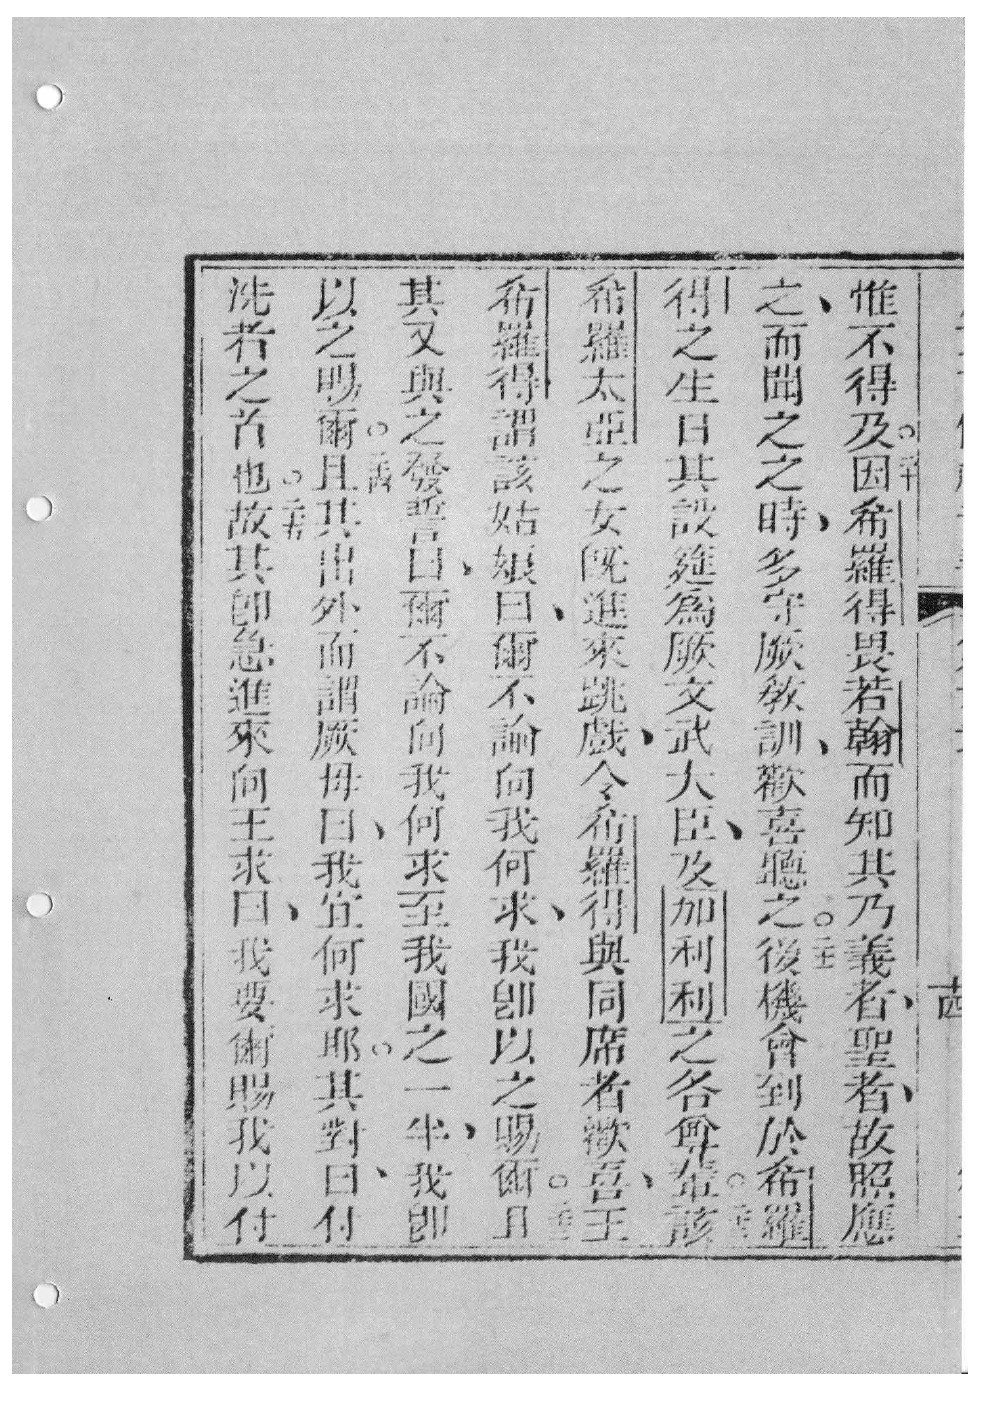 惟不得及。二十因希羅得畏若翰而知其乃義者、聖者、故照應
之、而聞之之時、多守厥敎訓、歡喜聽之。二十一後機會到於希羅
得之生日其設筵爲厥文武大臣、及加利利之各尊輩。二十二該
希羅太亞之女旣進來跳戲、令希羅得與同席者歡喜、王
希羅得謂該姑娘曰、爾不論向我何求、我卽以之賜爾。二十三且
其又與之發誓曰、爾不論向我何求至我國之一半、我卽
以之賜爾。二十四且其出外而謂厥母曰、我宜何求耶。其對曰、付
洗者之首也。二十五故其卽急進來向王求曰、我要爾賜我以付